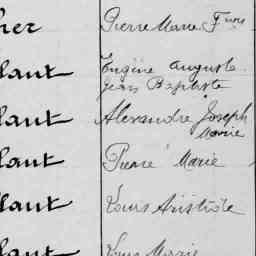 her Pierre Marie Frcois
lant Eugène Auguste
Jean Baptiste
lant Alexandre Joseph
Marie
lant Pierre Marie
llant Louis Aristide
lant Louis Marie